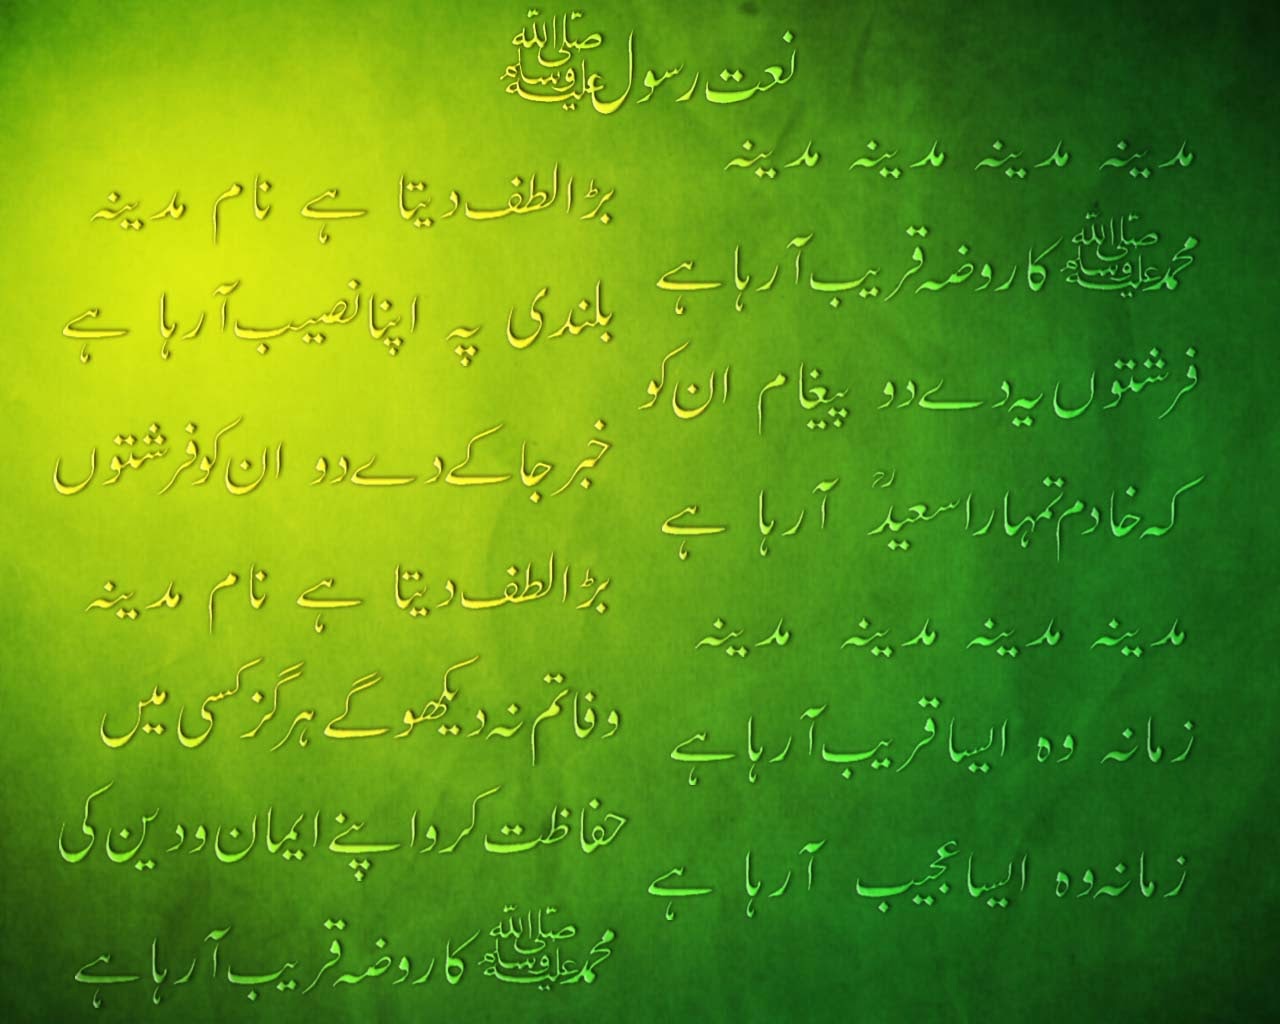 نعت رسول ﷺ
مدینہ مدینہ مدینہ مدینہ
بڑا لطف دیتا ہے نام مدینہ
محمد ﷺ کا روضہ قریب آ رہا ہے
بلندی پہ اپنا نصیب آ رہا ہے
فرشتوں یہ دے دو پیغام ان کو
خبر جا کے دے دو ان کو فرشتوں
کہ خادم تمہارا سعیدؒ آ رہا ہے
بڑا لطف دیتا ہے نام مدینہ
مدینہ مدینہ مدینہ مدینہ
وفا تم نہ دیکھو گے ہرگز کسی میں
زمانہ وہ ایسا قریب آ رہا ہے
حفاظت کرو اپنے ایمان و دین کی
زمانہ وہ ایسا عجیب آ رہا ہے
محمد ﷺ کا روضہ قریب آ رہا ہے